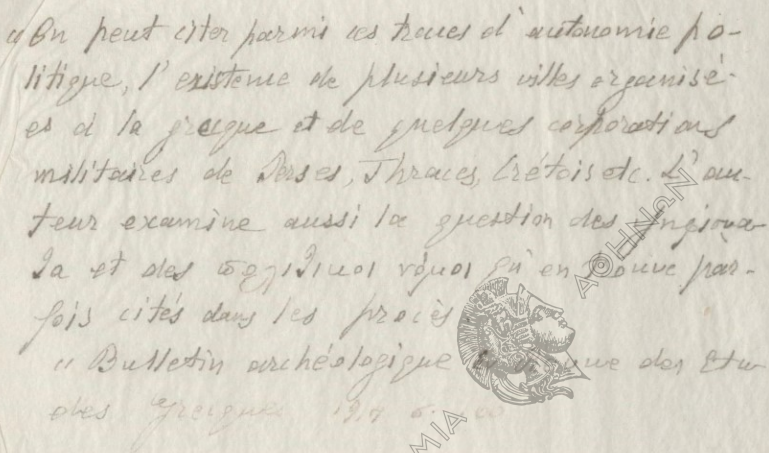 « On peut citer parmi ces traces d'autonomie po-
litique, l'existence de plusieurs villes organisé-
es à la grecque et de quelques corporations
militaires de Perses, Thraces, Crétois etc. L'au-
teur examine aussi la question des
et des νόμοι qu'en trouve par-
fois cités dans les procès
« Bulletin archéologique Revue des Etu-
des Grecques
ΑΘΗΝΩΝ
ΜΙΑ